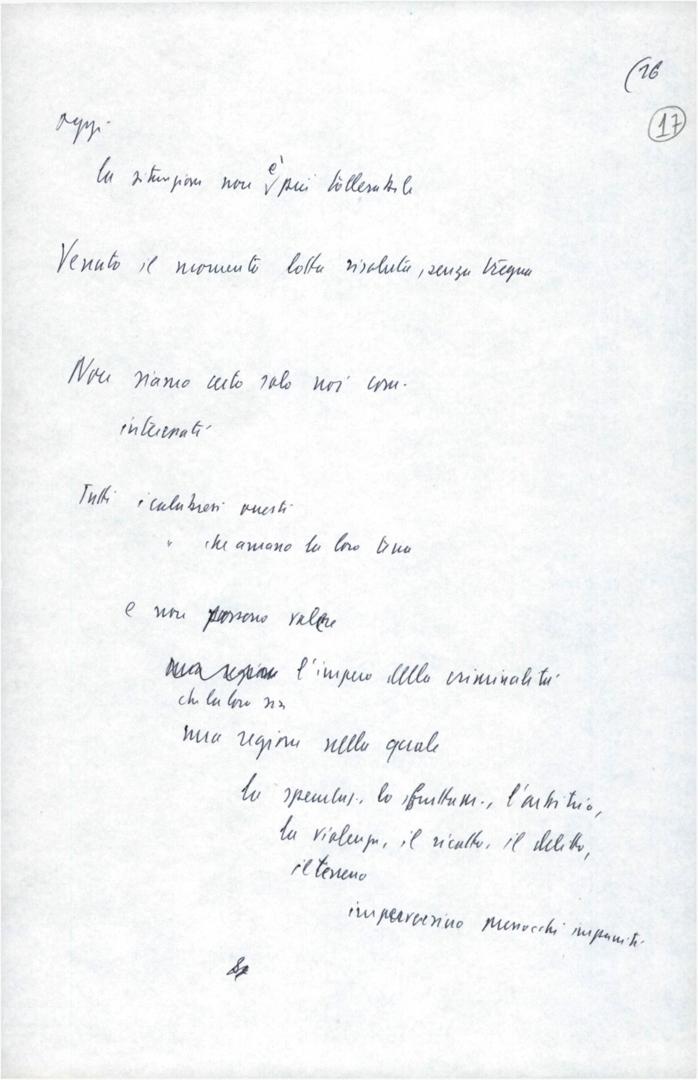 (16
17
oggi
la situazione non è più tollerabile
Venuto il momento lotta risoluta, senza tregua
Non siamo certo solo noi com.
interessati
Tutti i calabresi onesti
" che amano la loro terra
e non possono volere
l'impero della criminalità
che la loro sia
una regione nella quale
la speculaz., lo sfruttam., l'arbitrio,
la violenza, il ricatto, il delitto,
il terrore
imperversino
impuniti